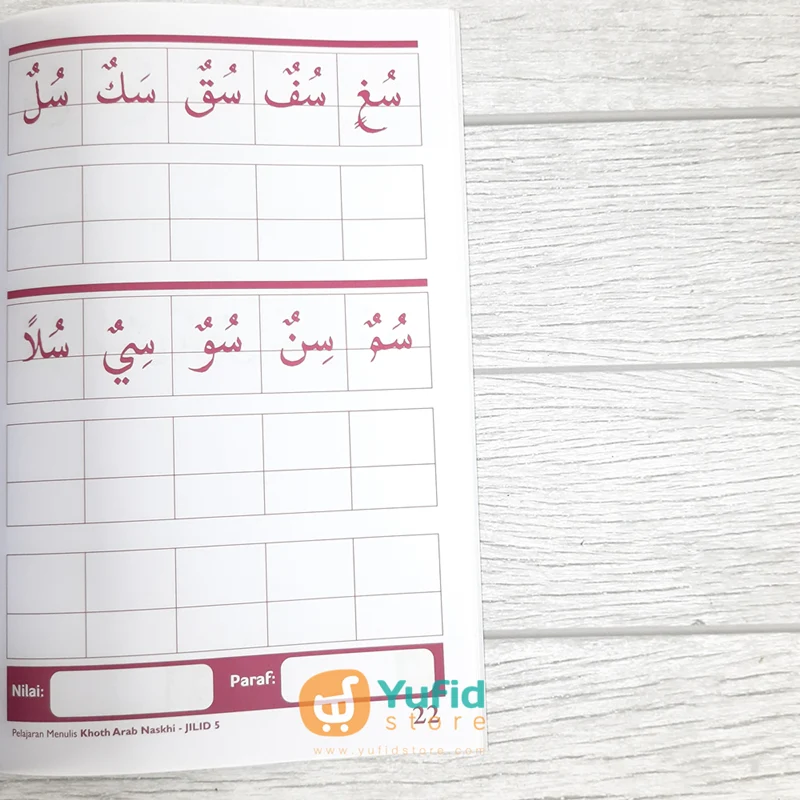 سُغٍ سُفٌ سُقٌ سَكٌ سُلٌ
سُمٌ سِنٌ سُوٌ سِيٌ سُلاً
Nilai: Paraf:
Pelajaran Menulis Khoth Arab Naskhi - JILID 5 22
Yufid
store
www.yufidstore.com